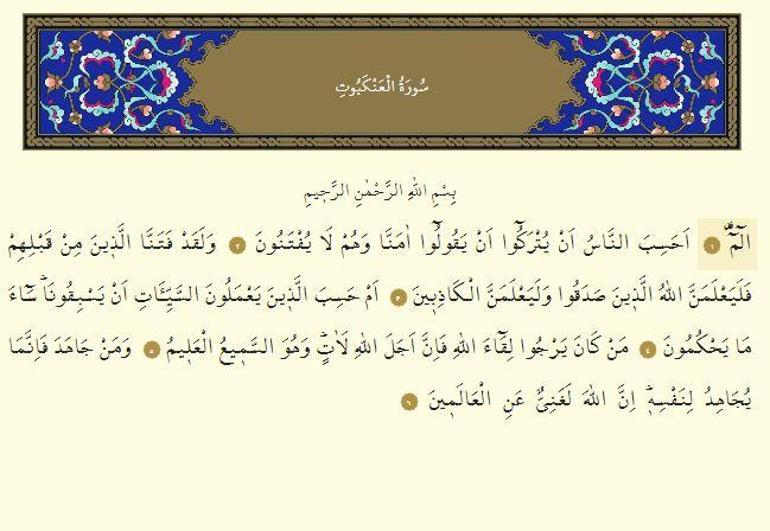 سُورَةُ الْعَنْكَبُوتِ
بِسْمِ اللهِ الرَّحْمٰنِ الرَّح۪يمِ
الٓمٓۚ ﴿١﴾ اَحَسِبَ النَّاسُ اَنْ يُتْرَكُٓوا اَنْ يَقُولُٓوا اٰمَنَّا وَهُمْ لَا يُفْتَنُونَ ﴿٢﴾ وَلَقَدْ فَتَنَّا الَّذ۪ينَ مِنْ قَبْلِهِمْ
فَلَيَعْلَمَنَّ اللهُ الَّذ۪ينَ صَدَقُوا وَلَيَعْلَمَنَّ الْكَاذِب۪ينَ ﴿٣﴾ اَمْ حَسِبَ الَّذ۪ينَ يَعْمَلُونَ السَّيِّـَٔاتِ اَنْ يَسْبِقُونَاۜ سَٓاءَ
مَا يَحْكُمُونَ ﴿٤﴾ مَنْ كَانَ يَرْجُوا لِقَٓاءَ اللهِ فَاِنَّ اَجَلَ اللهِ لَاٰتٍۜ وَهُوَ السَّم۪يعُ الْعَل۪يمُ ﴿٥﴾ وَمَنْ جَاهَدَ فَاِنَّمَا
يُجَاهِدُ لِنَفْسِه۪ۜ اِنَّ اللهَ لَغَنِيٌّ عَنِ الْعَالَم۪ينَ ﴿٦﴾